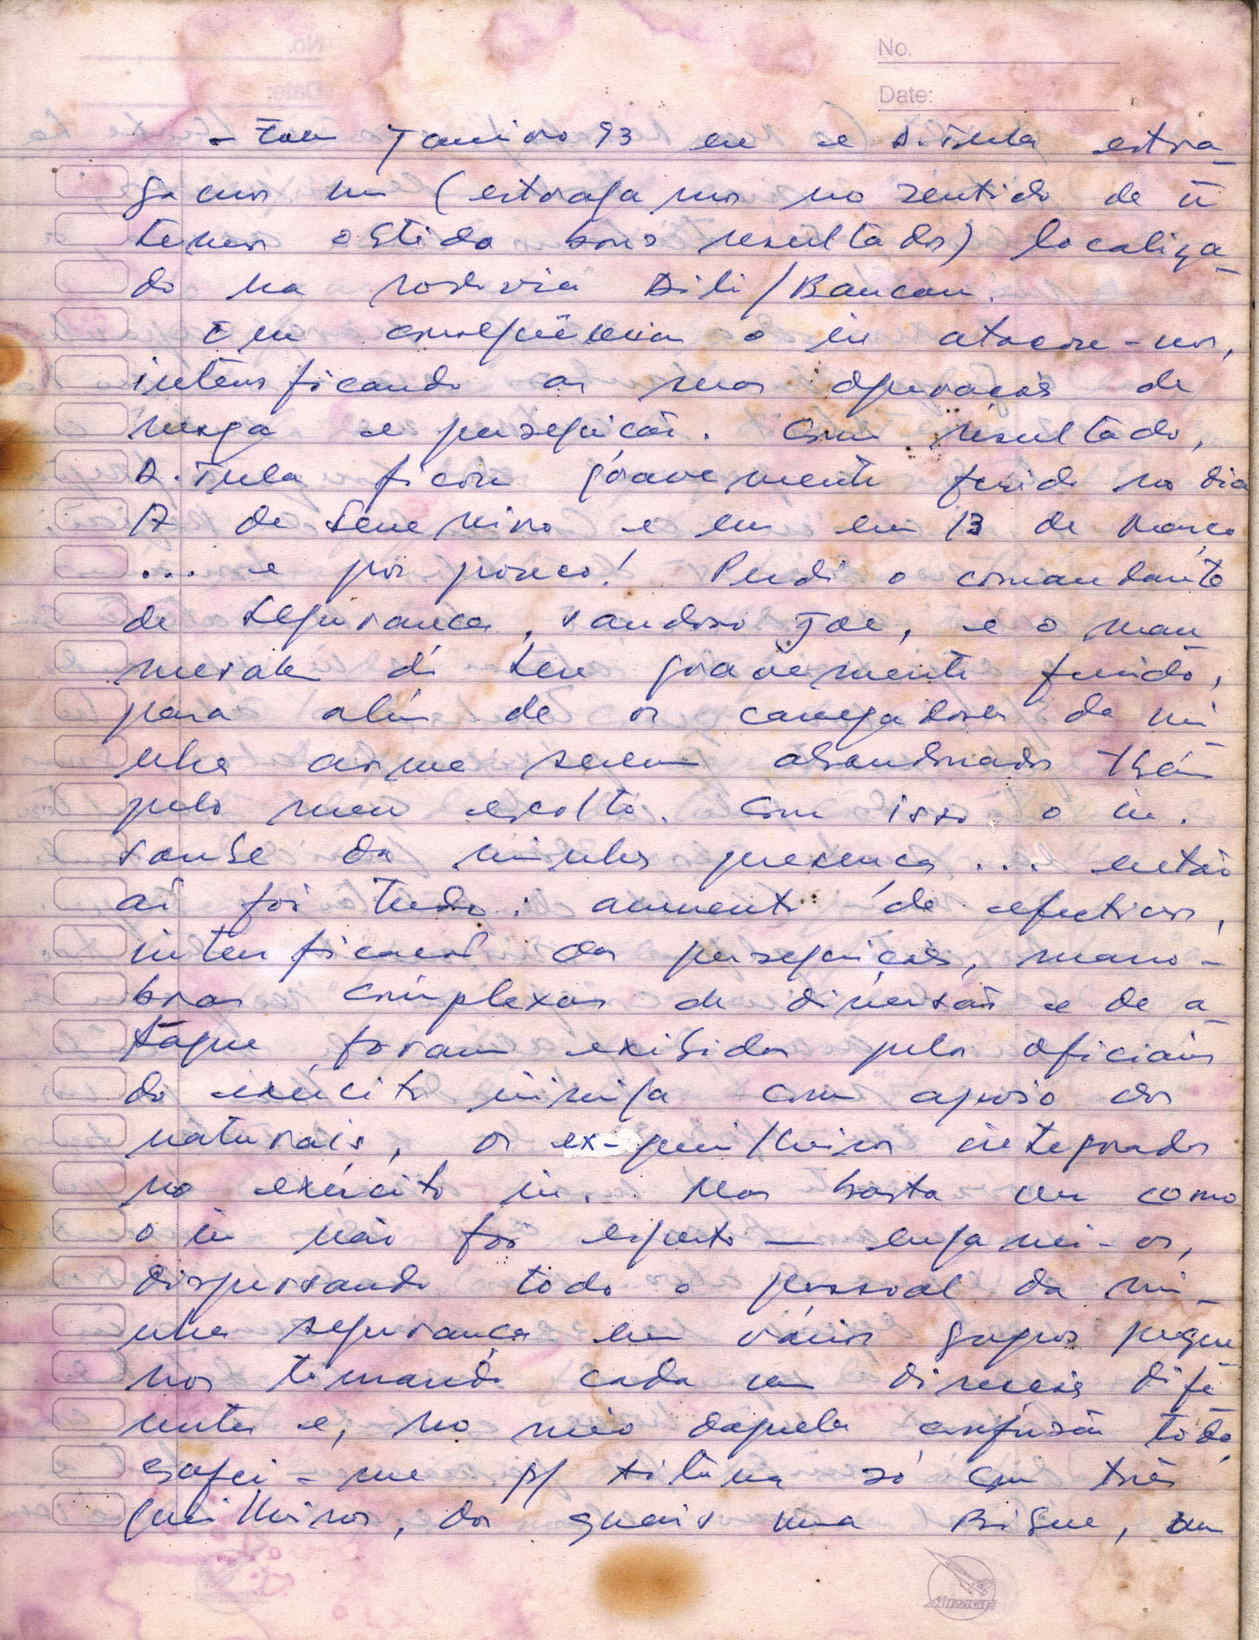 No.
Date:
- Em Janeiro 93 eu e D. Tula estra-
gamos um (estragamos no sentido de ñ
termos obtido bons resultados) localiza-
do na rodovia Dili/Baucau.
Em consequência o in atacou-nos,
intensificando as suas operações de
rusga e perseguição. Como resultado,
D. Tula ficou gravemente ferido no dia
17 de Fevereiro e eu em 13 de Março
... e por pouco! Perdi o comandante
de segurança, saudoso Joe, e o mau
merak di leu gravemente ferido,
para além de os carregadores da mi
nha arma serem abandonados tbém
pelo meu escolta. Com isso o in.
soube da minha presença ... então
aí foi tudo: aumento de efectivos,
intensificação das perseguições, mano-
bras complexas de diversão e de a-
taque foram exibidas pelos oficiais
do exército inimigo com apoio dos
naturais, os ex-guerrilheiros integrados
no exército in.. Mas basta ver como
o in não foi esperto — enganei-os,
dispersando todo o pessoal da mi-
nha segurança em vários grupos peque
nos tomando cada um direcção dife
rentes e, no meio daquela confusão toda,
safei-me p/ Aitana só com três
guerrilheiros, dos quais uma Bigue, um